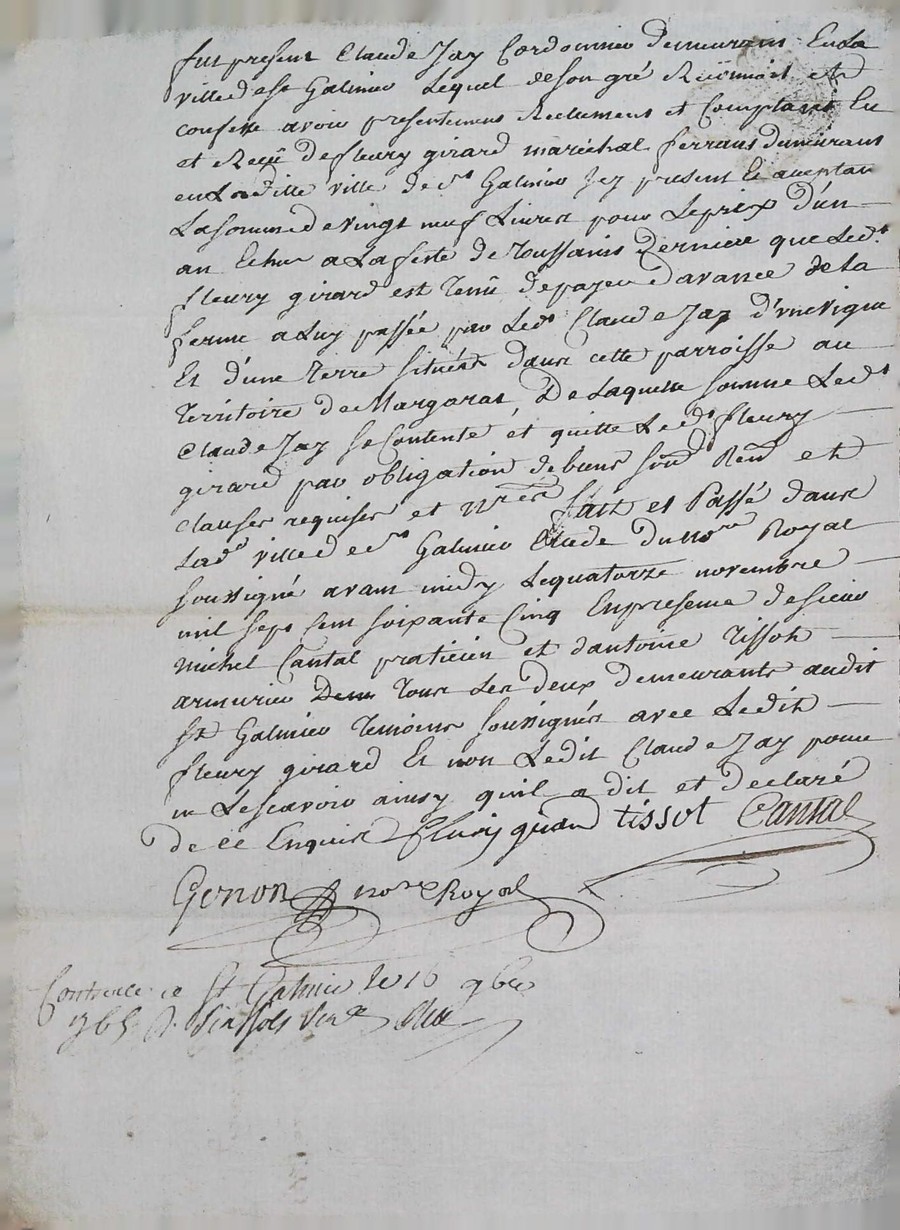 fut present Claude Jay Cordonnier demeurant En La
ville de st Galmier Lequel de son gré Reconnoit et
confesse avoir presentement Reellement et Comptant Eu
et Reçû de fleury girard maréchal ferrant demeurant
en Ladite ville de st Galmier Icy present Et acceptant
La somme de vingt neuf Livres pour Le prix d'un
an Echu a La feste de Toussaints derniere que Led.t
fleury girard est Tenû de payer d'avance de La
ferme a Luy passée par Led.t Claude Jay d'une vigne
Et d'une Terre situées dans cette parroisse au
Territoire de Margorat, De Laquelle somme Led.t
Claude Jay se Contente et quitte Led.t fleury
girard par obligation de biens
clauses requises et fait et Passé dans
Lad.e ville de st Galmier Etude du no.re Royal
soussigné avant midy Le quatorze novembre
mil sept cent soixante Cinq En presence de sieur
michel Cantal praticien et d'antoine Tissot
armurier Tous Les deux demeurants audit
st Galmier Temoins soussignés avec Ledit
fleury girard Et non Ledit Claude Jay pour
ne Le scavoir ainsy qu'il a dit et declaré
de ce Enquis fleury girard tissot Cantal
Genon no.re Royal
Controlé a St Galmier le 16 9bre
1765